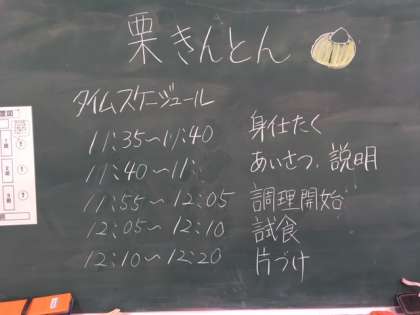 栗きんとん
タイムスケジュール
11:35～11:40 身仕たく
11:40～11: あいさつ、説明
11:55～12:05 調理開始
12:05～12:10 試食
12:10～12:20 片づけ